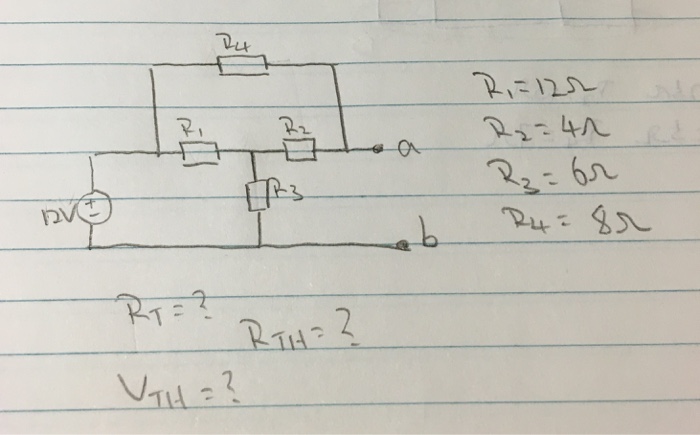 R4
R1 R2 a
R3
12V
b
R1=12Ω
R2=4Ω
R3=6Ω
R4=8Ω
RT=?
RTH=?
VTH=?